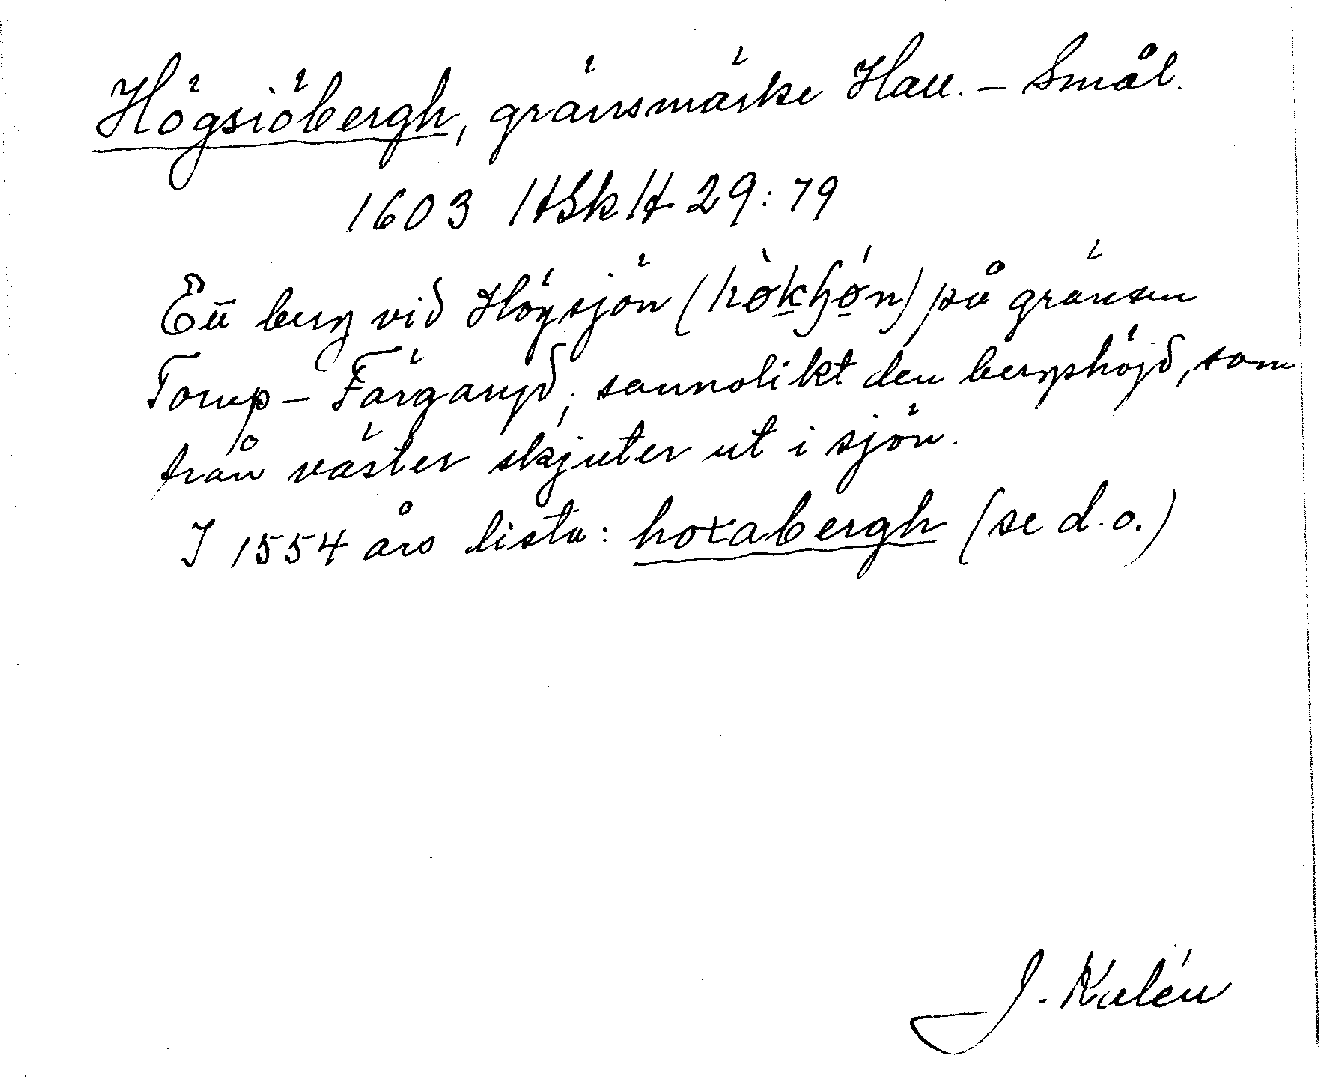 Högsiöbergh, gränsmärke Hall. – Smål.
1603 HSkH 29:79
Ett berg vid Högsjön (hò̱kʃǿ̱n) på gränsen
Torup – Färgaryd, sannolikt den bergshöjd, som
från väster skjuter ut i sjön.
I 1554 års lista: hoxabergh (se d.o.)
J. Kalén